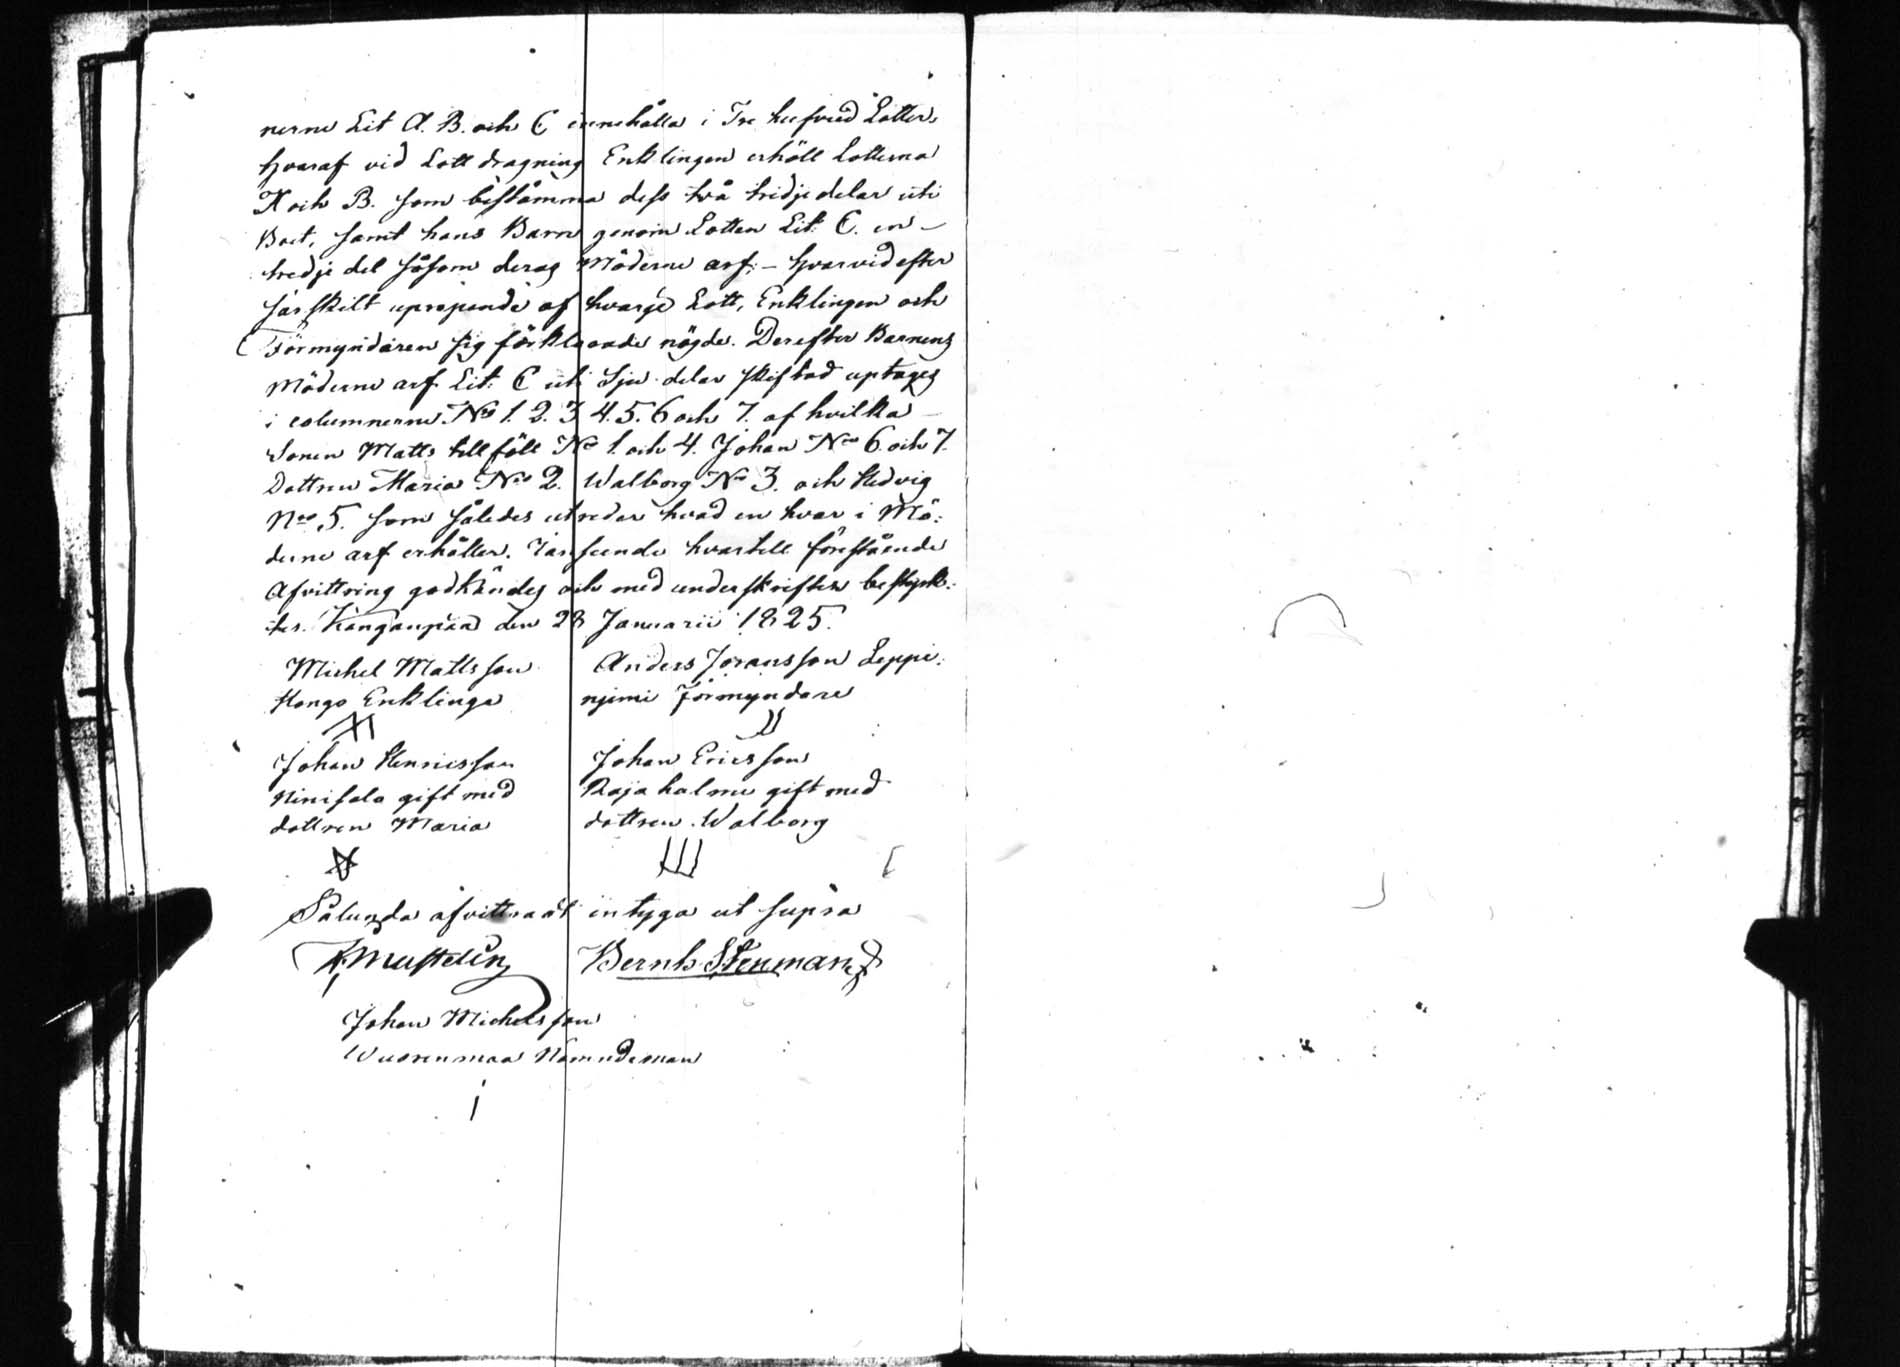 nerne Lit A. B. och C innehålla i Tre hufvud Lotter,
hvaraf vid Lottdragning Enklingen erhöll Lotterna
A och B. som bestämma dess två tridjedelar uti
Boet, samt hans Barn genom Lotten Lit. C. en
tredjedel såsom deras Möderne arf; – hvarvid efter
särskilt upropande af hvarje Lott, Enklingen och
Förmyndaren sig förklarade nöjde. Derefter Barnens
Möderne arf Lit: C uti Sju delar skiftad uptages
i columnerne No 1. 2. 3 4. 5. 6 och 7. af hvilka
Sonen Matts tillföll No 1. och 4. Johan No 6. och 7.
Dottren Maria No 2. Walborg No 3. och Hedvig
No 5. som således utreder hvad en hvar i Mö:
derne arf erhåller. hvartill förestående
Afvittring godkändes och med underskrifter bestyrk:
tes. Kanganpää den 28 Januarii 1825.
Michel Mattsson Anders Joransson Leppi:
Hongo Enklinge njimi Förmyndare
Johan Henricsson Johan Ericsson
Ninisalo gift med Rajahalme gift med
dottren Maria dottren Walborg
Sålunda afvittradt intyga ut supra
Mustelin Bernh. Stenman
Johan Michelsson
Wuorenmaa Nämndeman